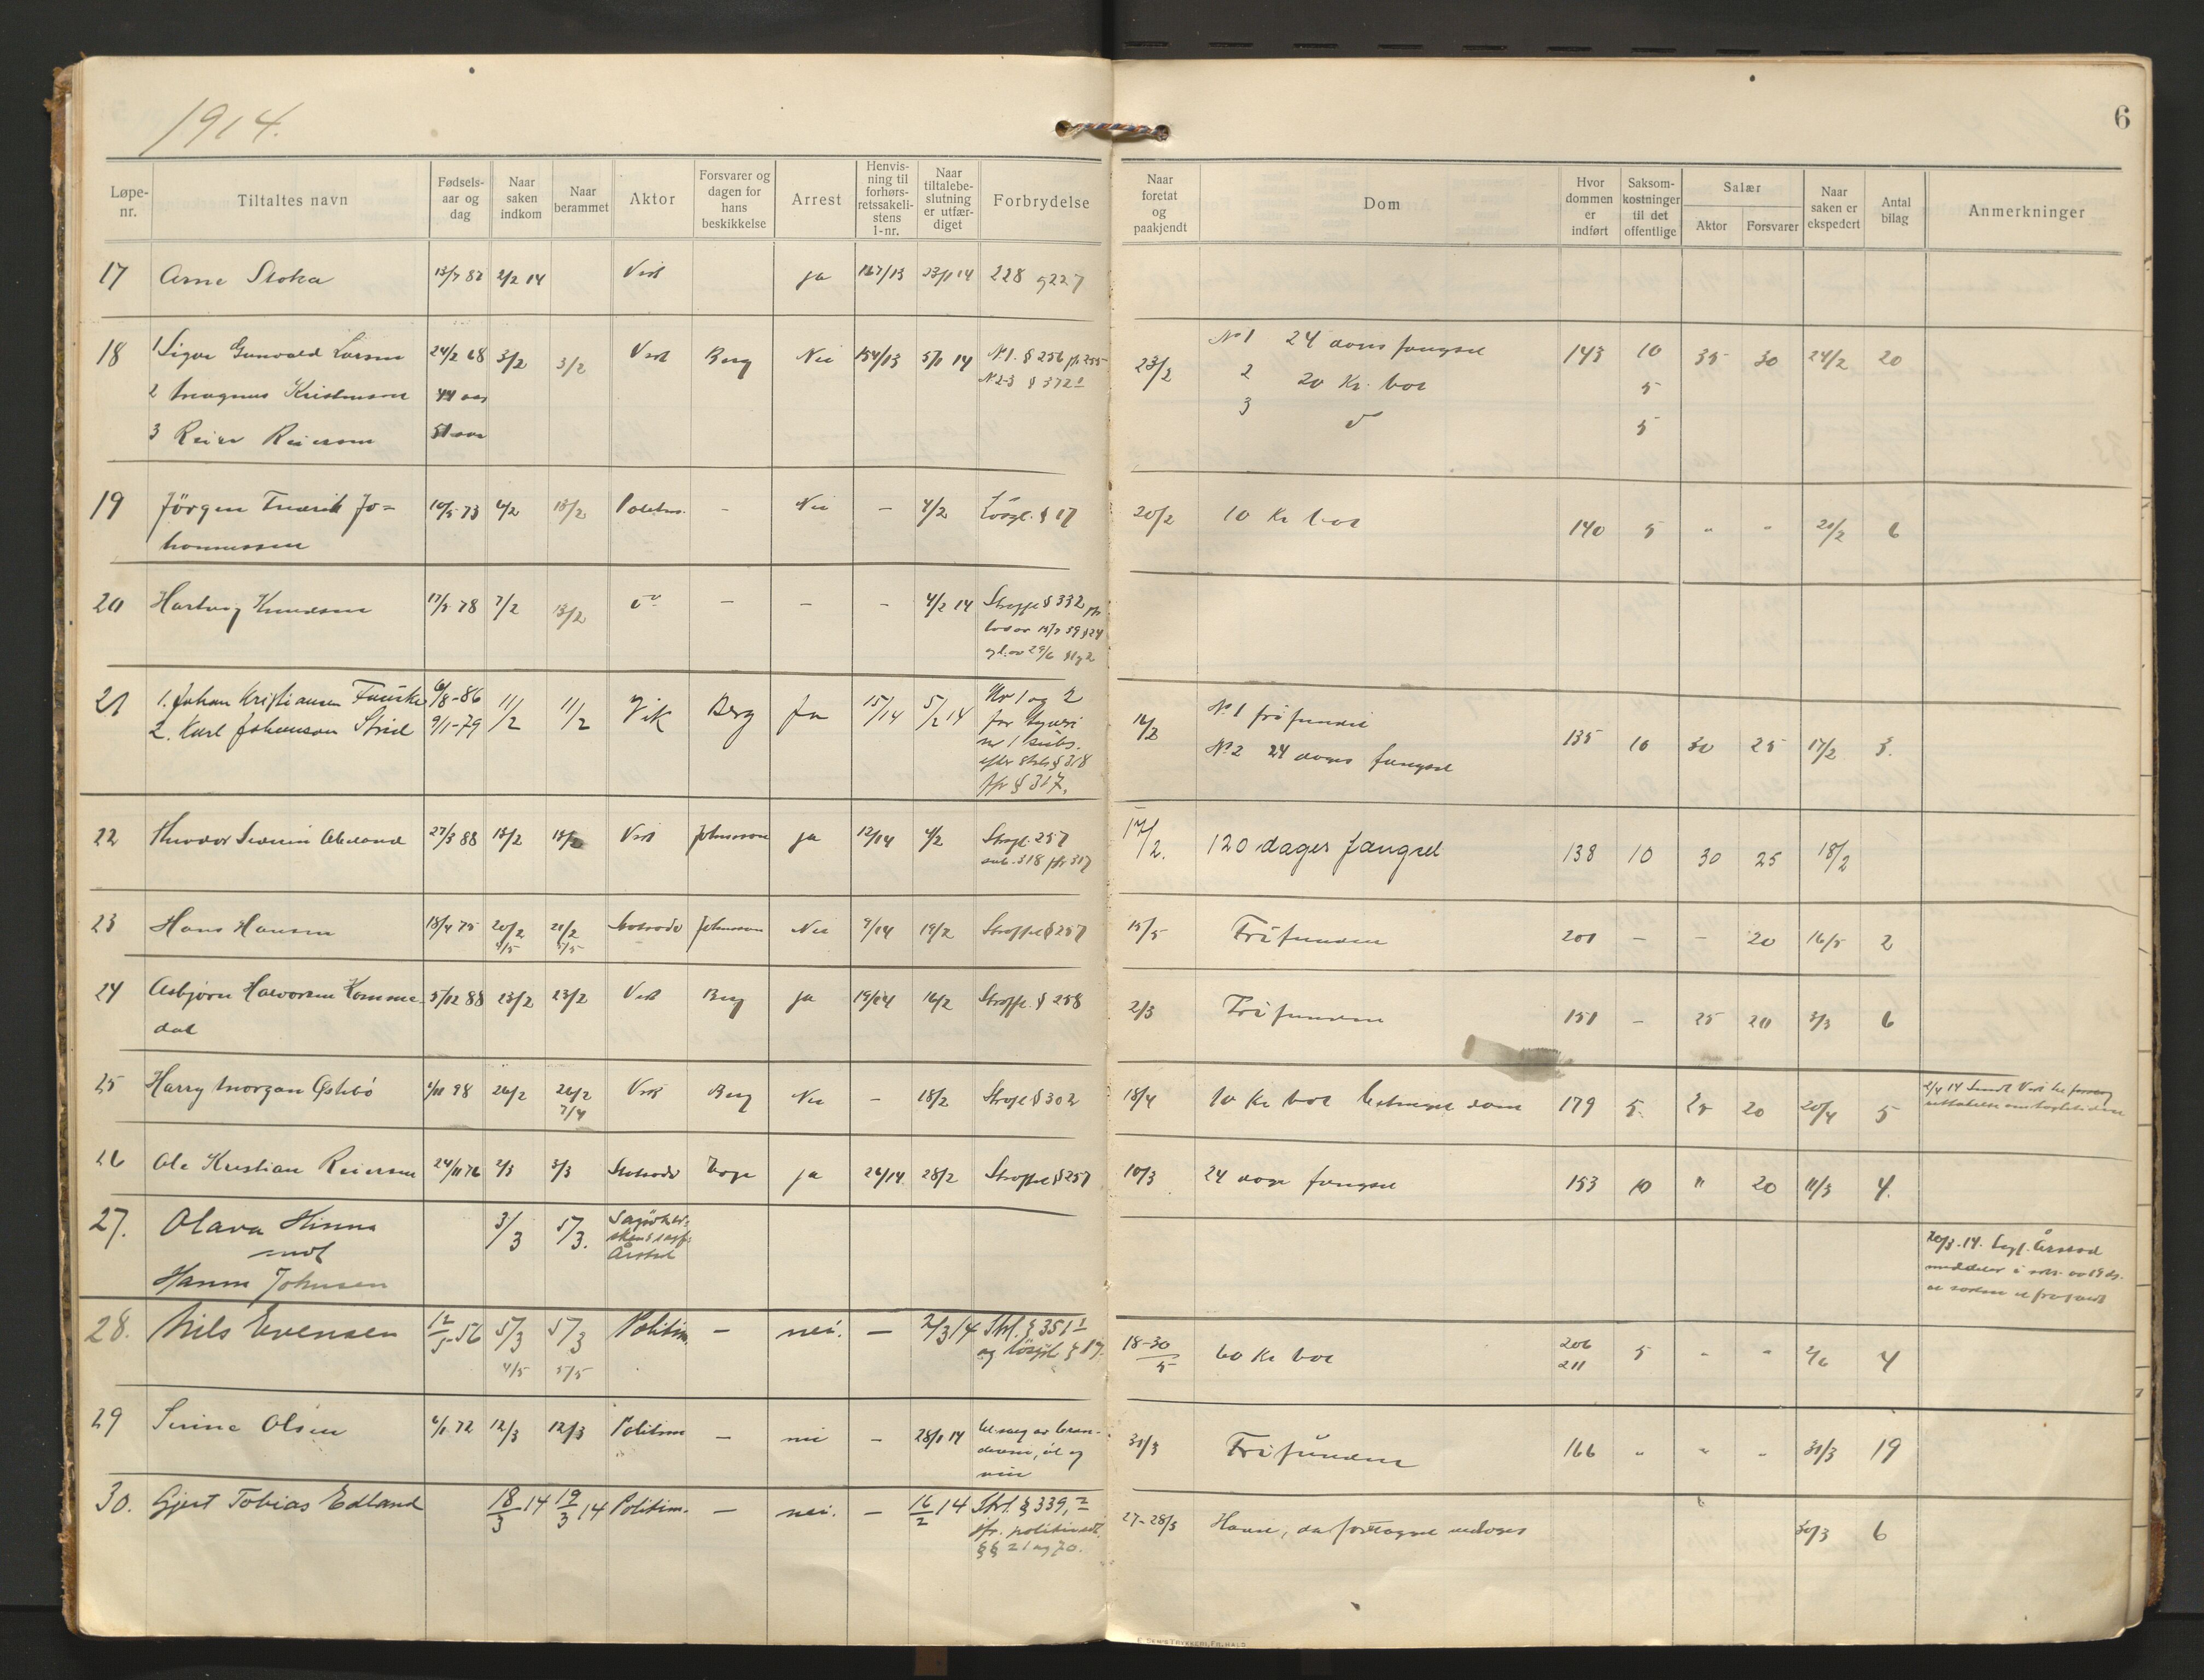 1914.
6
Løpe-nr.
Tiltaltes navn
Fødsels-aar og dag
Naar saken indkom
Naar berammet
Aktor
Forsvarer og dagen for hans beskikkelse
Arrest
Henvis-ning til forhørs-retssakeli-stens l-nr.
Naar tiltalebe-slutning er utfær-diget
Forbrydelse
Naar foretat og paakjendt
Dom
Hvor dommen er indført
Saksom-kostninger til det offentlige
Salær
Aktor
Forsvarer
Naar saken er ekspedert
Antal bilag
Anmerkninger
17 Arne 13/7 82 2/2 14 ja 167/13 23/1 14 228 og 227
18 1 Gunvald Larsen 24/2 68 3/2 3/2 Berg Nei 154/13 5/1 14 No 1. § 256 jfr 255
No 2-3 § 372 1
23/2 No 1 24 dages fængsel 143 10 35 30 24/2 20
2 Magnus Kristensen 44 aar
2 20 Kr. bot 5
3 Reier Reiersen 51 aar
3 do 5
19 Jörgen Fredrik Jo= 10/5 73 4/2 13/2 Politim. - Nei - 4/2 Lösgl. § 17 20/2 10 Kr bot 140 5 " " 21/2 6
hannessen
20 Hartvig Knudsen 17/5 78 7/2 13/2 do - - - 4/2 14 Straffel § 332 jfr
21 1. Johan Kristiansen Fauske 6/8-86 11/2 11/2 Vik Berg Ja 15/14 5/2 14 Nr 1 og 2
2. Karl Johanson Strid 9/1-79
for tyveri
nr 1 subs.
efter Strl. § 318
jfr § 317.
16/2 No 1 frifunden 135 10 30 25 17/2 3.
No 2 24 dages fængsel
22 Theodor Severin 27/3 88 13/2 13/2 Johnsson ja 12/14 4/2 Strafl. 257
sub. 318 jfr 317
17/2. 120 dages fængsel 138 10 30 25 18/2
23 Hans Hansen 18/4 75 20/2 21/2 Johnsson Nei 9/14 19/2 Straffel § 257 15/5 Frifunden 201 - - 20 16/5 2
4/5 5/5
24 Asbjørn Halvorsen Komme- 5/12 88 23/2 23/2 Berg ja 19/14 16/2 Straffel. § 258 2/3 Frifunden 151 - 25 20 3/3 6
dal
25 Harry Morgan Østebö 1/11 98 24/2 26/2 Berg Nei - 18/2 Strafl § 302 18/4 10 Kr bot betinget dom 179 5. 25 20 20/4 5
7/4
26 Ole Kristian Reiersen 24/11 76 2/3 3/3 ja 26/14 28/2 Straffel § 257 10/3 24 dage fængsel 153 10 " 20 11/3 4.
27. Olava Hinna 3/3 5/3.
mot
Hanna Johnsen
28. Nils Evensen 12/5-56 5/3 5/3 Politim. - nei. - 2/3 14 Strl. § 351 1
og lösgl. § 17.
4/5 5/5
18-30/5 60 Kr bot 206 5 " " 2/6 4
211
29 Serine Olsen 6/1 72 12/3 12/3 Politim - nei - 28/1 14 ut salg av bran-
devin, öl og
vin
31/3 Frifunden 166 " " " 31/3 19
30. Gjert Tobias Edland 18/3 14 19/3 14 Politim. - nei. - 16/2 14 Strl. § 339, 2
jfr. politivedt.
§§ 21 og 70.
27-28/3 Hævet, da forelagget vedtoges 30/3 6